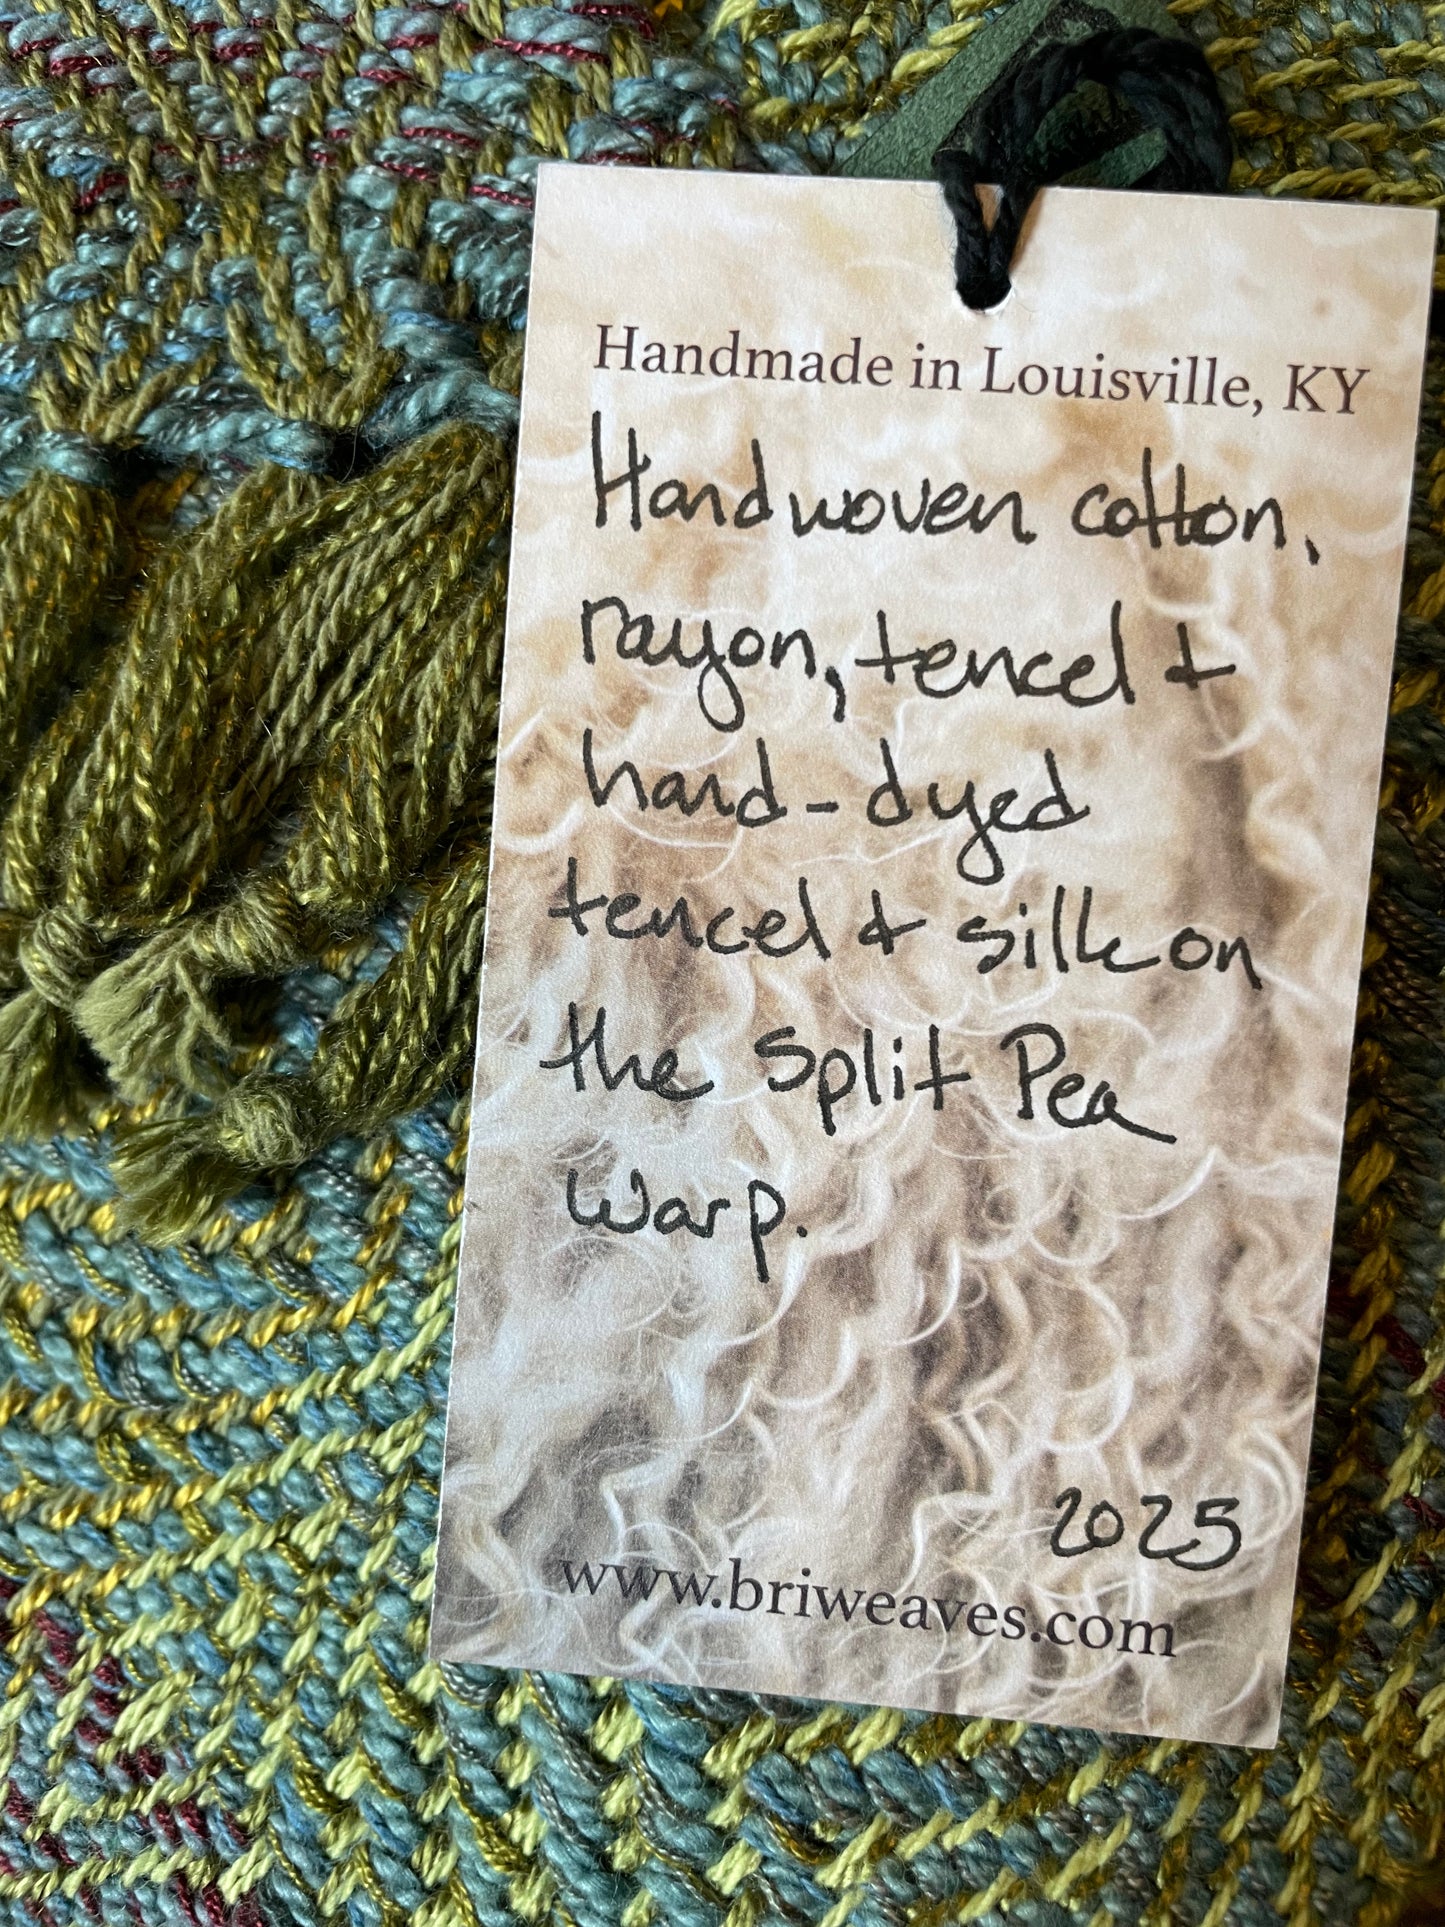 Handmade in Louisville, KY
Handwoven cotton,
rayon, tencel &
hand-dyed
tencel & silk on
the Split Pea
warp.
2025
www.briweaves.com